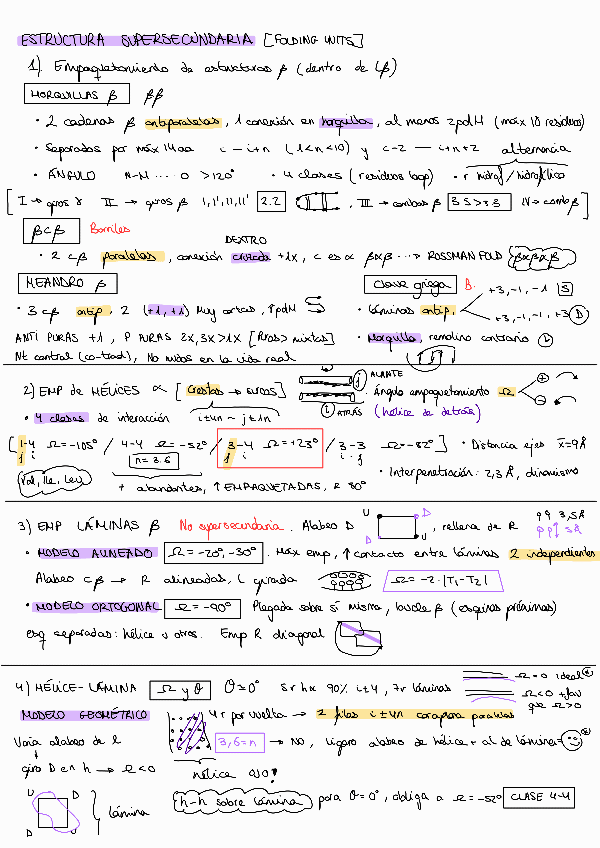 ESTRUCTURA SUPERSECUNDARIA [FOLDING UNITS]
1) Empaquetamiento de estructuras β (dentro de Lβ)
HORQUILLAS β ββ
· 2 cadenas β antiparalelas, 1 conexión en horquilla, al menos 2pdH (máx 10 residuos)
· Separados por máx 14aa c — i+n (1<n<10) y c-2 — i+n+2 alternancia
· ÁNGULO N-H ····· O >120° · 4 clases (residuos loop) · r hidrof/hidrofílico
[I → giros γ II → giros β I, I', II, II' 2:2 , III → combas β 3:5>3:3 IV → comb β]
βcβ Barriles
DENTRO
· 2 cβ paralelas, conexión cruzada +1x, c es α βαβ ···→ ROSSMAN FOLD βαβαβ
MEANDRO β
· 3 cβ antip. 2 (+1,+1) Muy cortas, ↑pdH
ANTI PURAS +1, P PURAS 2x,3x>1x [Puras> mixtas]
Nt central (co-trad), No nudos en la vida real
Clave griega B.
· Láminas antip. +3,-1,-1 S
+3,-1,-1,+3 D
· Horquilla, remolino contrario L
2) EMP de HÉLICES α [crestas → surcos]
j ALANTE
i ATRÁS
Ángulo empaquetamiento Ω + -
(hélice de detrás)
· 4 clases de interacción i±4n ~ j±1n
[1-4 Ω=-105° / 4-4 Ω=-52° / 3-4 Ω=+23° / 3-3 Ω=-82°]
j i n=3.6 j i i j
Val, Ile, Leu + abundantes, ↑EMPAQUETADAS, R 50°
· Distancia ejes x̄=9Å
· Interpenetración: 2,3 Å, dinamismo
3) EMP LÁMINAS β No supersecundaria. Alabeo D U D D U, rellena de R
· MODELO ALINEADO Ω=-20°,-30° . Máx emp, ↑contacto entre láminas 2 independientes
Alabeo cβ → R alineadas, L girada Ω=-2·|T1-T2|
· MODELO ORTOGONAL Ω=-90° Plegada sobre sí misma, bucle β (esquinas próximas)
esq separadas: hélice u otros. Emp R diagonal
4) HÉLICE-LÁMINA Ω y θ θ=0° 5r hα 90% i±4, 7r láminas
Ω=0 ideal
Ω<0 +fav
que Ω>0
MODELO GEOMÉTRICO 4r por vuelta → 2 filas i±4n corazona paralelas
Varía alabeo de l 3,6=n → NO, ligero alabeo de hélice + al de lámina=
giro D en h → Ω<0
hélice OJO!
U D D U lámina
h-h sobre lámina para θ=0°, obliga a Ω=-52° CLASE 4-4